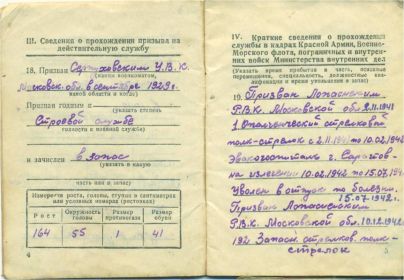 III. Сведения о прохождении призыва на
действительную службу
18. Призван Серпуховским У.В.К.
(каким военкоматом,
Московск. обл. в сентябре 1929 г.
какой области и когда)
Призван годным и
(указать степень
Строевой службе
годности к военной службе)
и зачислен в запас
(указать в какую
часть или в запас)
Измерения роста, головы, ступни в сантиметрах
или условных номерах (ростовках)
Рост
Окружность головы
Размер противогаза
Размер обуви
164
55
1
41
4
IV. Краткие сведения о прохождении
службы в кадрах Красной Армии, Военно-
Морского флота, пограничных и внутрен-
них войск Министерства внутренних дел
(Указать время прибытия в часть, основные
перемещения, специальность, должностные ква-
лификации и время увольнения в запас)
19. Призван Лопаснским
Р.В.К. Московской обл. 2.11.1941
1 Ополченческий стрелковой
полк-стрелок с 2.11.1941 по 10.02.1942
Эвакогоспиталь г. Саратов-
на излечении 10.02.1942 по 15.07.194
Уволен в отпуск по болезни.
15.07.1942г.
Призван Лопаснинским
Р.В.К. Московской обл. 10.12.1942г.
192 Запасн. стрелков. полк-
стрелок
5